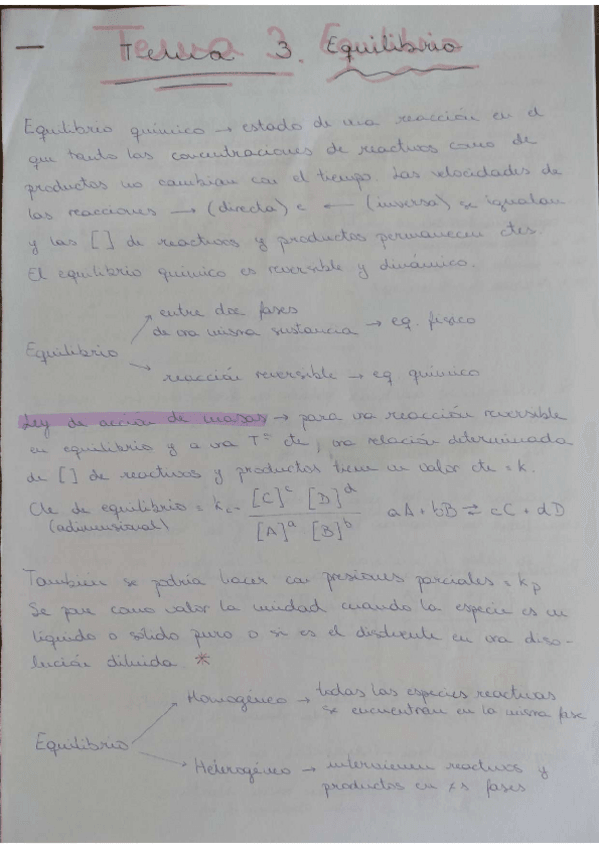 Tema 3. Equilibrio
Equilibrio químico → estado de una reacción en el
que tanto las concentraciones de reactivos como de
productos no cambian con el tiempo. Las velocidades de
las reacciones → (directa) e ← (inversa) se igualan
y las [ ] de reactivos y productos permanecen ctes.
El equilibrio químico es reversible y dinámico.
Equilibrio
entre dos fases
de una misma sustancia → eq. físico
reacción reversible → eq químico
Ley de acción de masas → para una reacción reversible
en equilibrio y a una Tª cte, una relación determinada
de [ ] de reactivos y productos tiene un valor cte = k.
Cte de equilibrio = Kc = [C]^c [D]^d / [A]^a [B]^b aA + bB ⇌ cC + dD
(adimensional)
También se podría hacer con presiones parciales = Kp
Se pone como valor la unidad cuando la especie es un
líquido o sólido puro o si es el disolvente en una diso-
lución diluida. *
Equilibrio
Homogéneo → todas las especies reactivas
se encuentran en la misma fase
Heterogéneo → intervienen reactivos y
productos en ≠s fases